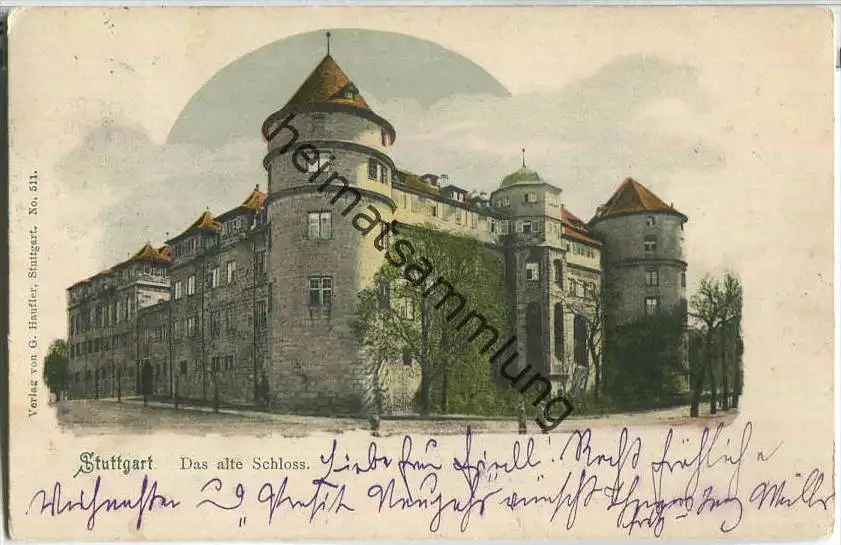 Verlag von G. Haufler, Stuttgart. No. 511.
heimatsammlung
Stuttgart Das alte Schloss. Liebe Recht fröhliche
Weihnachten u. Prosit Neujahr wünscht